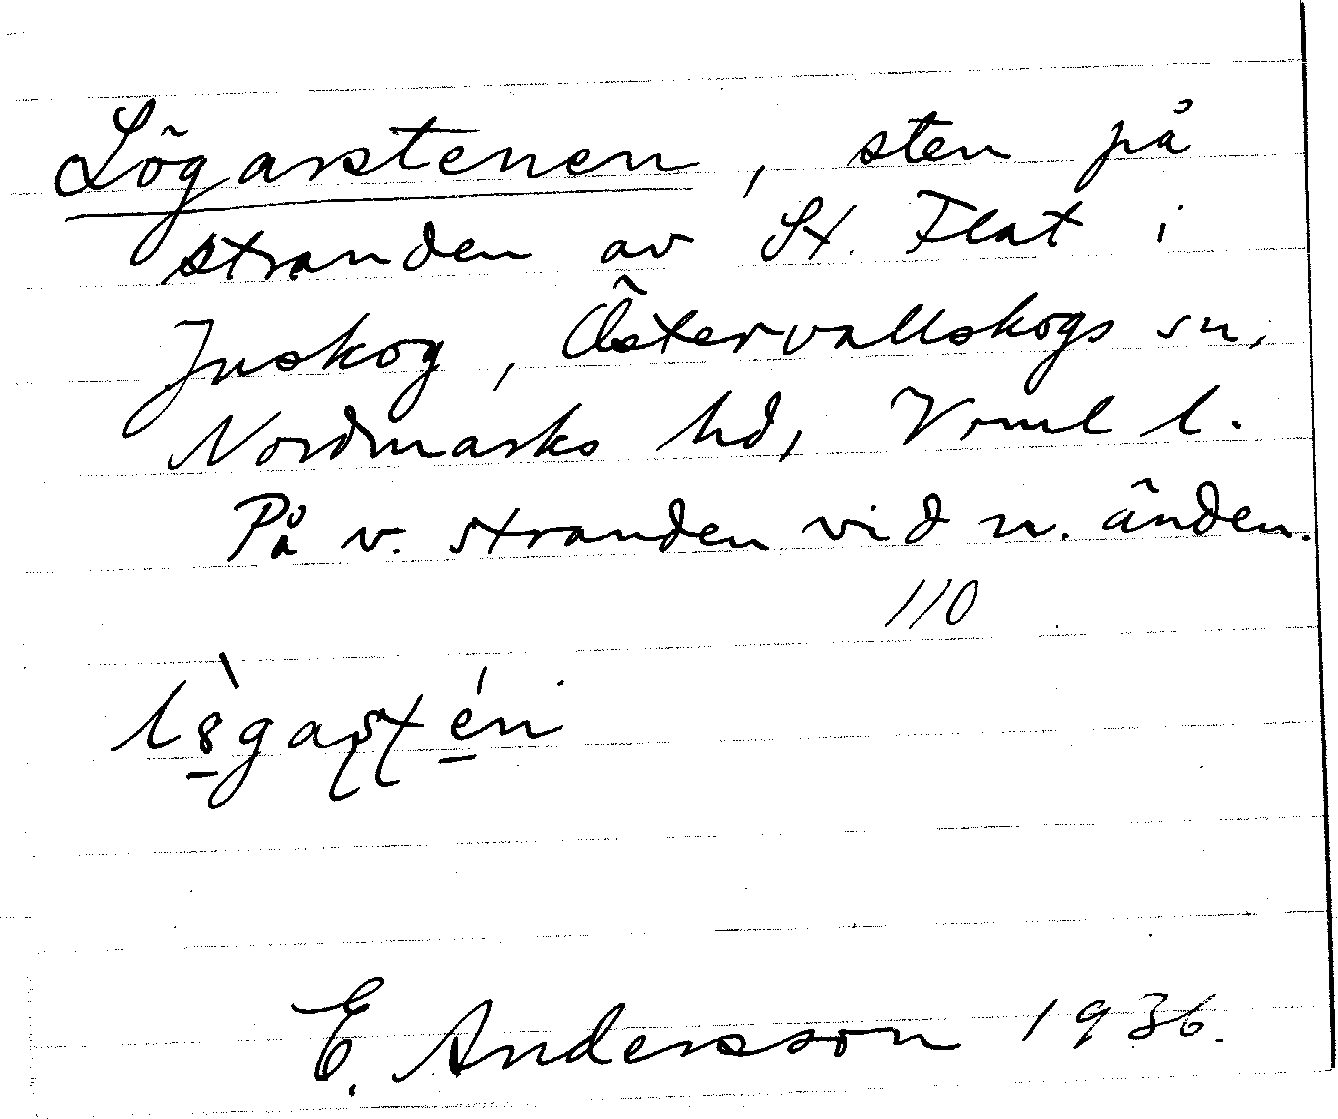 Lögarstenen, sten på
stranden av St. Flat i
Juskog, Östervallskogs sn,
Nordmarks hd, Vrml l.
På v. stranden vid n. änden.
110
E. Andersson 1936.